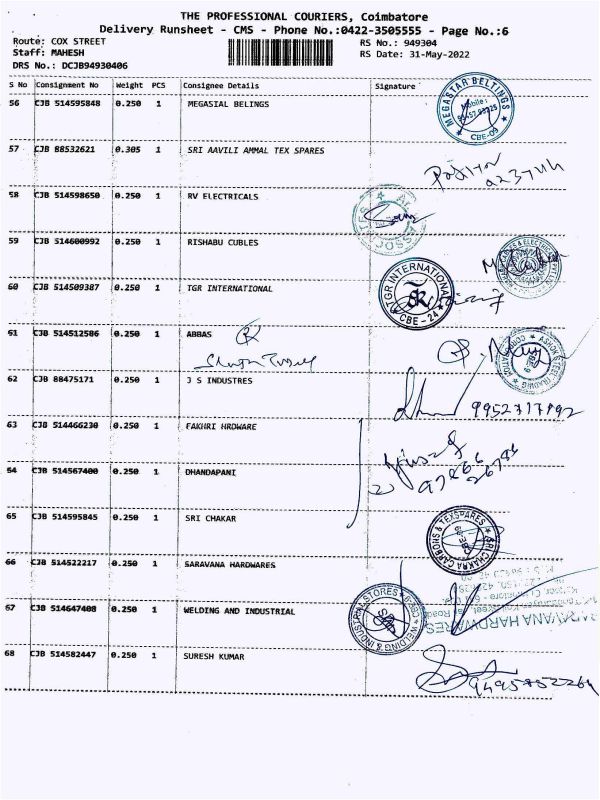 THE PROFESSIONAL COURIERS, Coimbatore
Delivery Runsheet - CMS - Phone No.:0422-3505555 - Page No.:6
Route: COX STREET RS No.: 949304
Staff: MAHESH RS Date: 31-May-2022
DRS No.: DCJB94930406
S No Consignment No Weight PCS Consignee Details Signature
56 CJB 514595848 0.250 1 MEGASIAL BELINGS
MEGASTAR BELTINGS
Mobile:
CBE-09
57 CJB 88532621 0.305 1 SRI AAVILI AMMAL TEX SPARES
58 CJB 514598650 0.250 1 RV ELECTRICALS
59 CJB 514600992 0.250 1 RISHABU CUBLES
60 CJB 514509387 0.250 1 TGR INTERNATIONAL
TGR INTERNATIONAL
CBE - 24
61 CJB 514512586 0.250 1 ABBAS
62 CJB 88475171 0.250 1 J S INDUSTRES
9952717192
63 CJB 514466230 0.250 1 FAKHRI HRDWARE
64 CJB 514567400 0.250 1 DHANDAPANI
65 CJB 514595845 0.250 1 SRI CHAKAR
SRI CHAKRA CARBONS & TEXSPARES
66 CJB 514522217 0.250 1 SARAVANA HARDWARES
67 CJB 514647408 0.250 1 WELDING AND INDUSTRIAL
WELDING & INDUSTRIAL STORES
SARAVANA HARDWARES
68 CJB 514582447 0.250 1 SURESH KUMAR